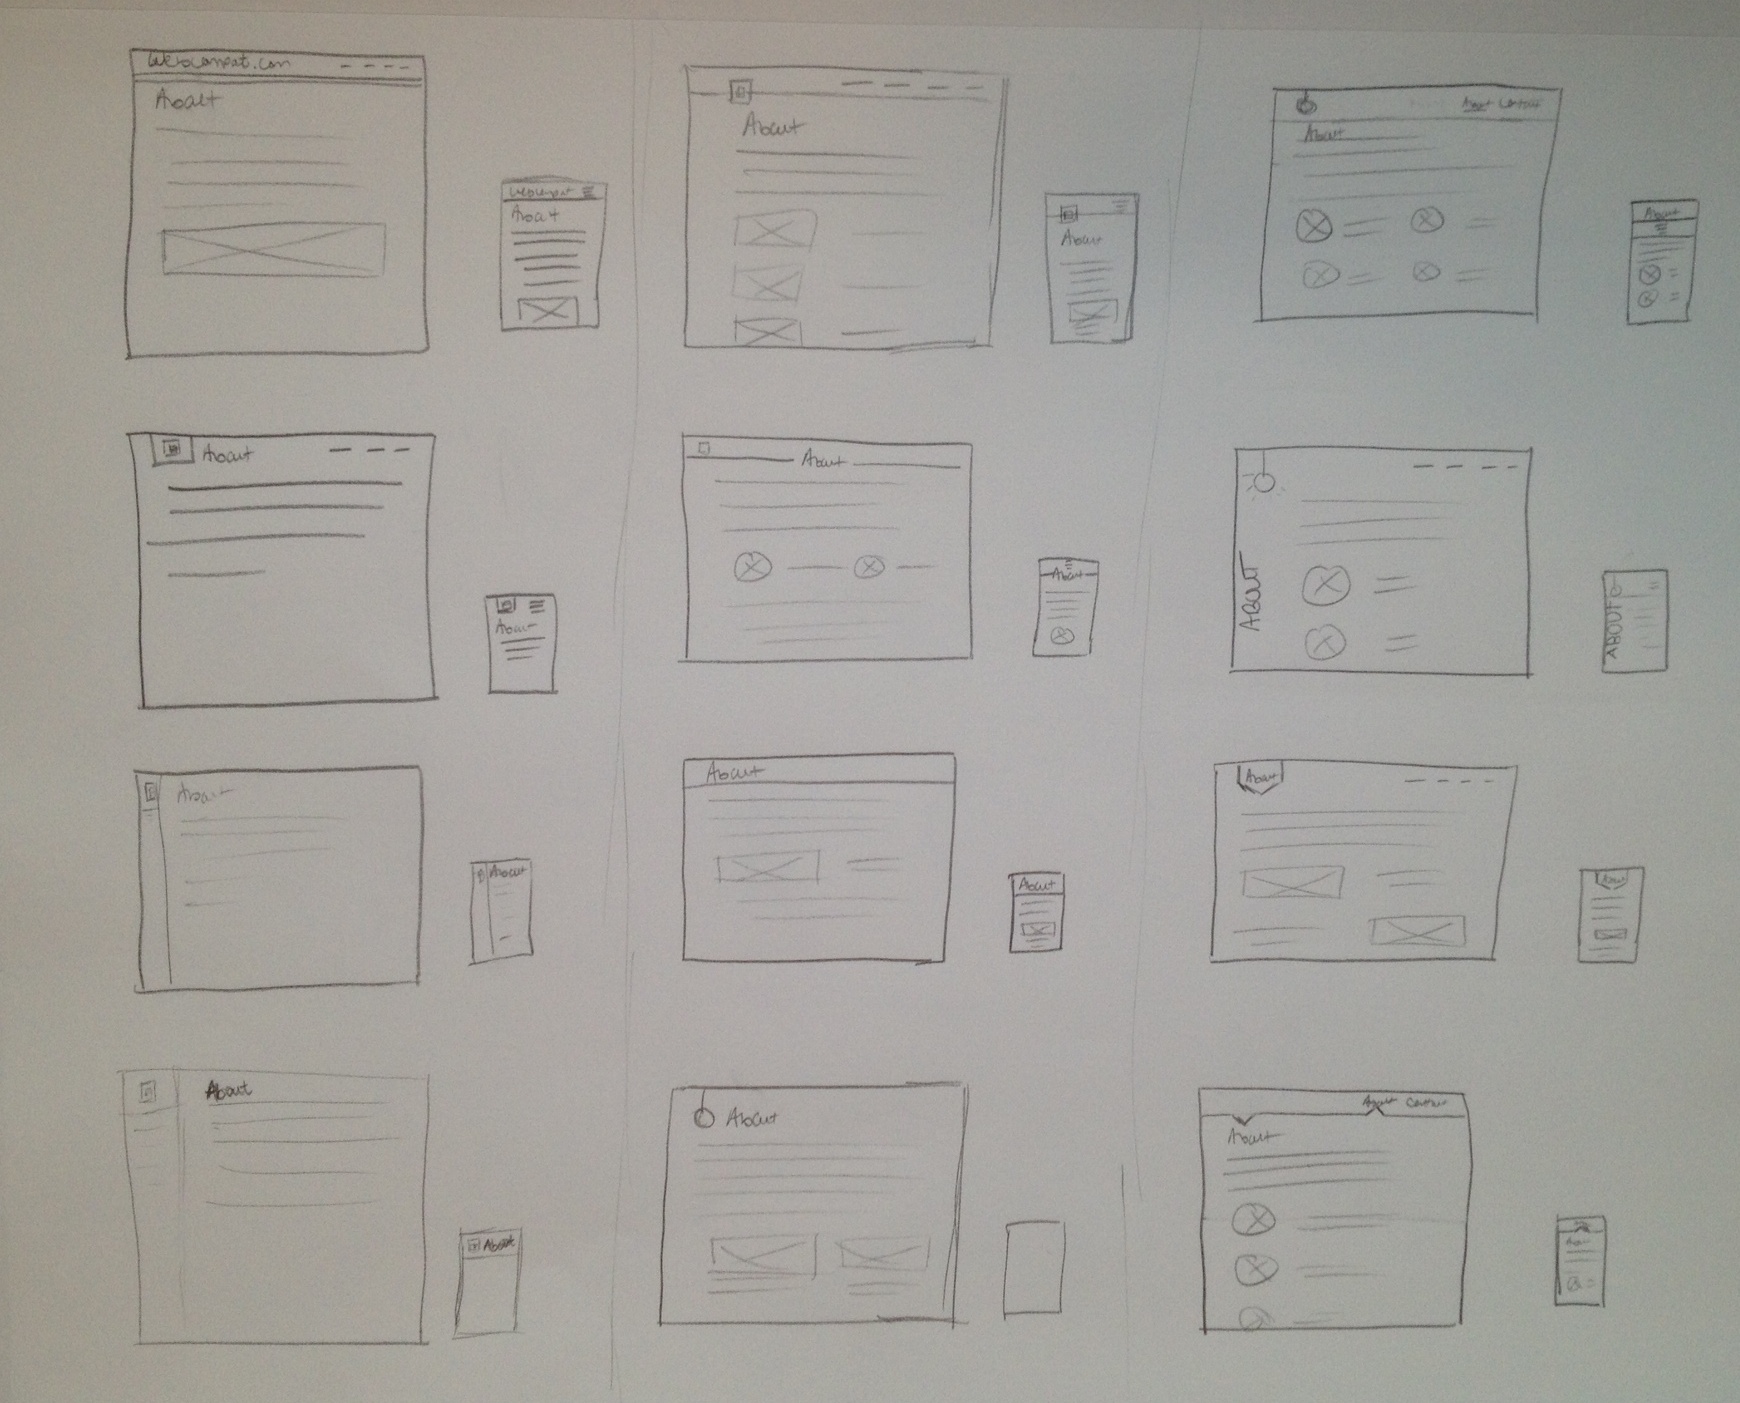 webcompat.com
About
webcompat
About
About
About
About Contact
About
About
About
About
About
About
ABOUT
ABOUT
About
About
About
About
About
About
About
About
About
About Contact
About